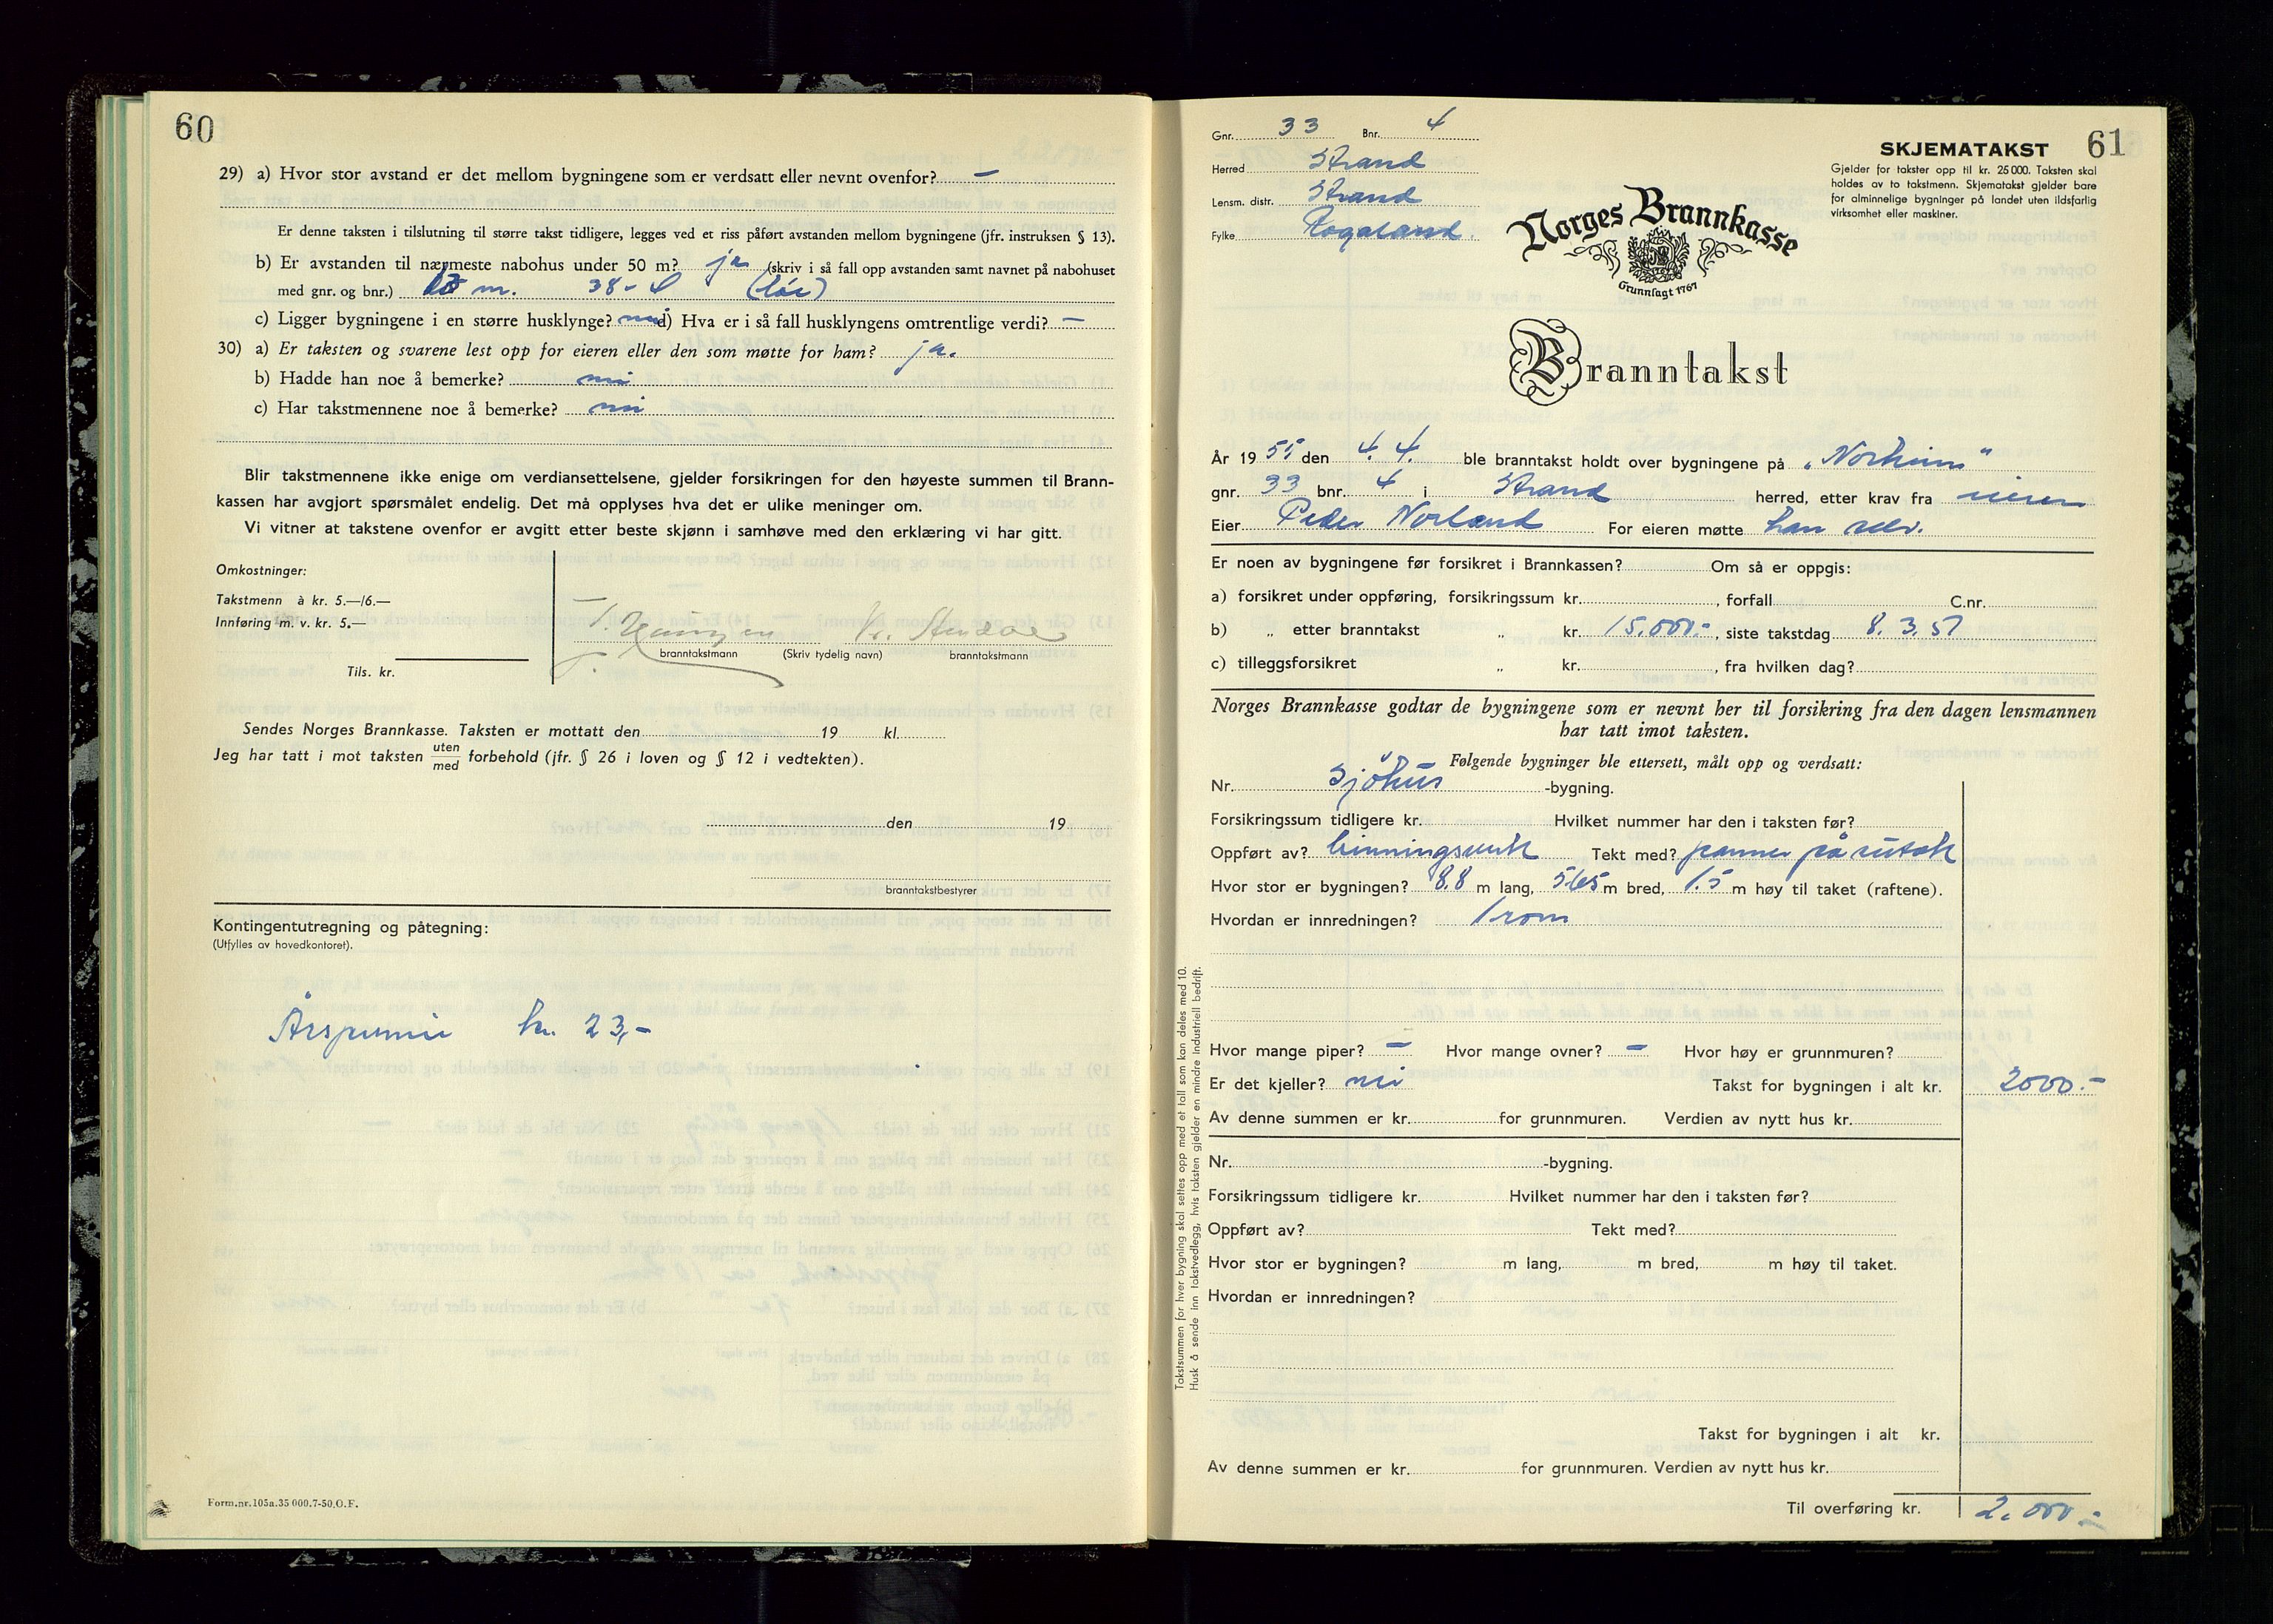 60
29) a) Hvor stor avstand er det mellom bygningene som er verdsatt eller nevnt ovenfor? —
Er denne taksten i tilslutning til større takst tidligere, legges ved et riss påført avstanden mellom bygningene (jfr. instruksen § 13).
b) Er avstanden til nærmeste nabohus under 50 m? ja (skriv i så fall opp avstanden samt navnet på nabohuset
med gnr. og bnr.) m. 38-4 (löe)
c) Ligger bygningene i en større husklynge? nei d) Hva er i så fall husklyngens omtrentlige verdi? —
30) a) Er taksten og svarene lest opp for eieren eller den som møtte for ham? ja.
b) Hadde han noe å bemerke? nei
c) Har takstmennene noe å bemerke? nei
Blir takstmennene ikke enige om verdiansettelsene, gjelder forsikringen for den høyeste summen til Brann-
kassen har avgjort spørsmålet endelig. Det må opplyses hva det er ulike meninger om.
Vi vitner at takstene ovenfor er avgitt etter beste skjønn i samhøve med den erklæring vi har gitt.
Omkostninger:
Takstmenn à kr. 5.—/6.—
Innføring m. v. kr. 5.—
Tils. kr.
branntakstmann (Skriv tydelig navn) branntakstmann
Sendes Norges Brannkasse. Taksten er mottatt den 19 kl.
Jeg har tatt i mot taksten uten/med forbehold (jfr. § 26 i loven og § 12 i vedtekten).
den 19
branntakstbestyrer
Kontingentutregning og påtegning:
(Utfylles av hovedkontoret).
Årspremie kr. 23,-
Form.nr.105a.35 000.7-50.O.F.
61
Gnr. 33 Bnr. 4
Herred Strand
Lensm. distr. Strand
Fylke Rogaland.
SKJEMATAKST
Gjelder for takster opp til kr. 25000. Taksten skal
holdes av to takstmenn. Skjematakst gjelder bare
for alminnelige bygninger på landet uten ildsfarlig
virksomhet eller maskiner.
Norges Brannkasse
Grunnlagt 1767
Branntakst
År 1955 den 4.4. ble branntakst holdt over bygningene på „Norheim"
gnr. 33 bnr. 4 i Strand herred, etter krav fra eieren
Eier Peder Norland For eieren møtte han selv.
Er noen av bygningene før forsikret i Brannkassen? Om så er oppgis:
a) forsikret under oppføring, forsikringssum kr. , forfall C.nr.
b) „ etter branntakst „ kr. 15.000.- , siste takstdag 8.3.51
c) tilleggsforsikret „ kr. , fra hvilken dag?
Norges Brannkasse godtar de bygningene som er nevnt her til forsikring fra den dagen lensmannen
har tatt imot taksten.
Følgende bygninger ble ettersett, målt opp og verdsatt:
Nr. Sjöhus -bygning.
Forsikringssum tidligere kr. Hvilket nummer har den i taksten før?
Oppført av? binningsverk Tekt med? panner på sutak
Hvor stor er bygningen? 8.8 m lang, 5.65 m bred, 1.5 m høy til taket (raftene).
Hvordan er innredningen? 1 rom
Hvor mange piper? — Hvor mange ovner? — Hvor høy er grunnmuren?
Er det kjeller? nei Takst for bygningen i alt kr. 2000.-
Av denne summen er kr. for grunnmuren. Verdien av nytt hus kr.
Nr. -bygning.
Forsikringssum tidligere kr. Hvilket nummer har den i taksten før?
Oppført av? Tekt med?
Hvor stor er bygningen? m lang, m bred, m høy til taket.
Hvordan er innredningen?
Takst for bygningen i alt kr.
Av denne summen er kr. for grunnmuren. Verdien av nytt hus kr.
Til overføring kr. 2.000.-
Takstsummen for hver bygning skal settes opp med et tall som kan deles med 10.
Husk å sende inn takstvedlegg, hvis taksten gjelder en mindre industriell bedrift.